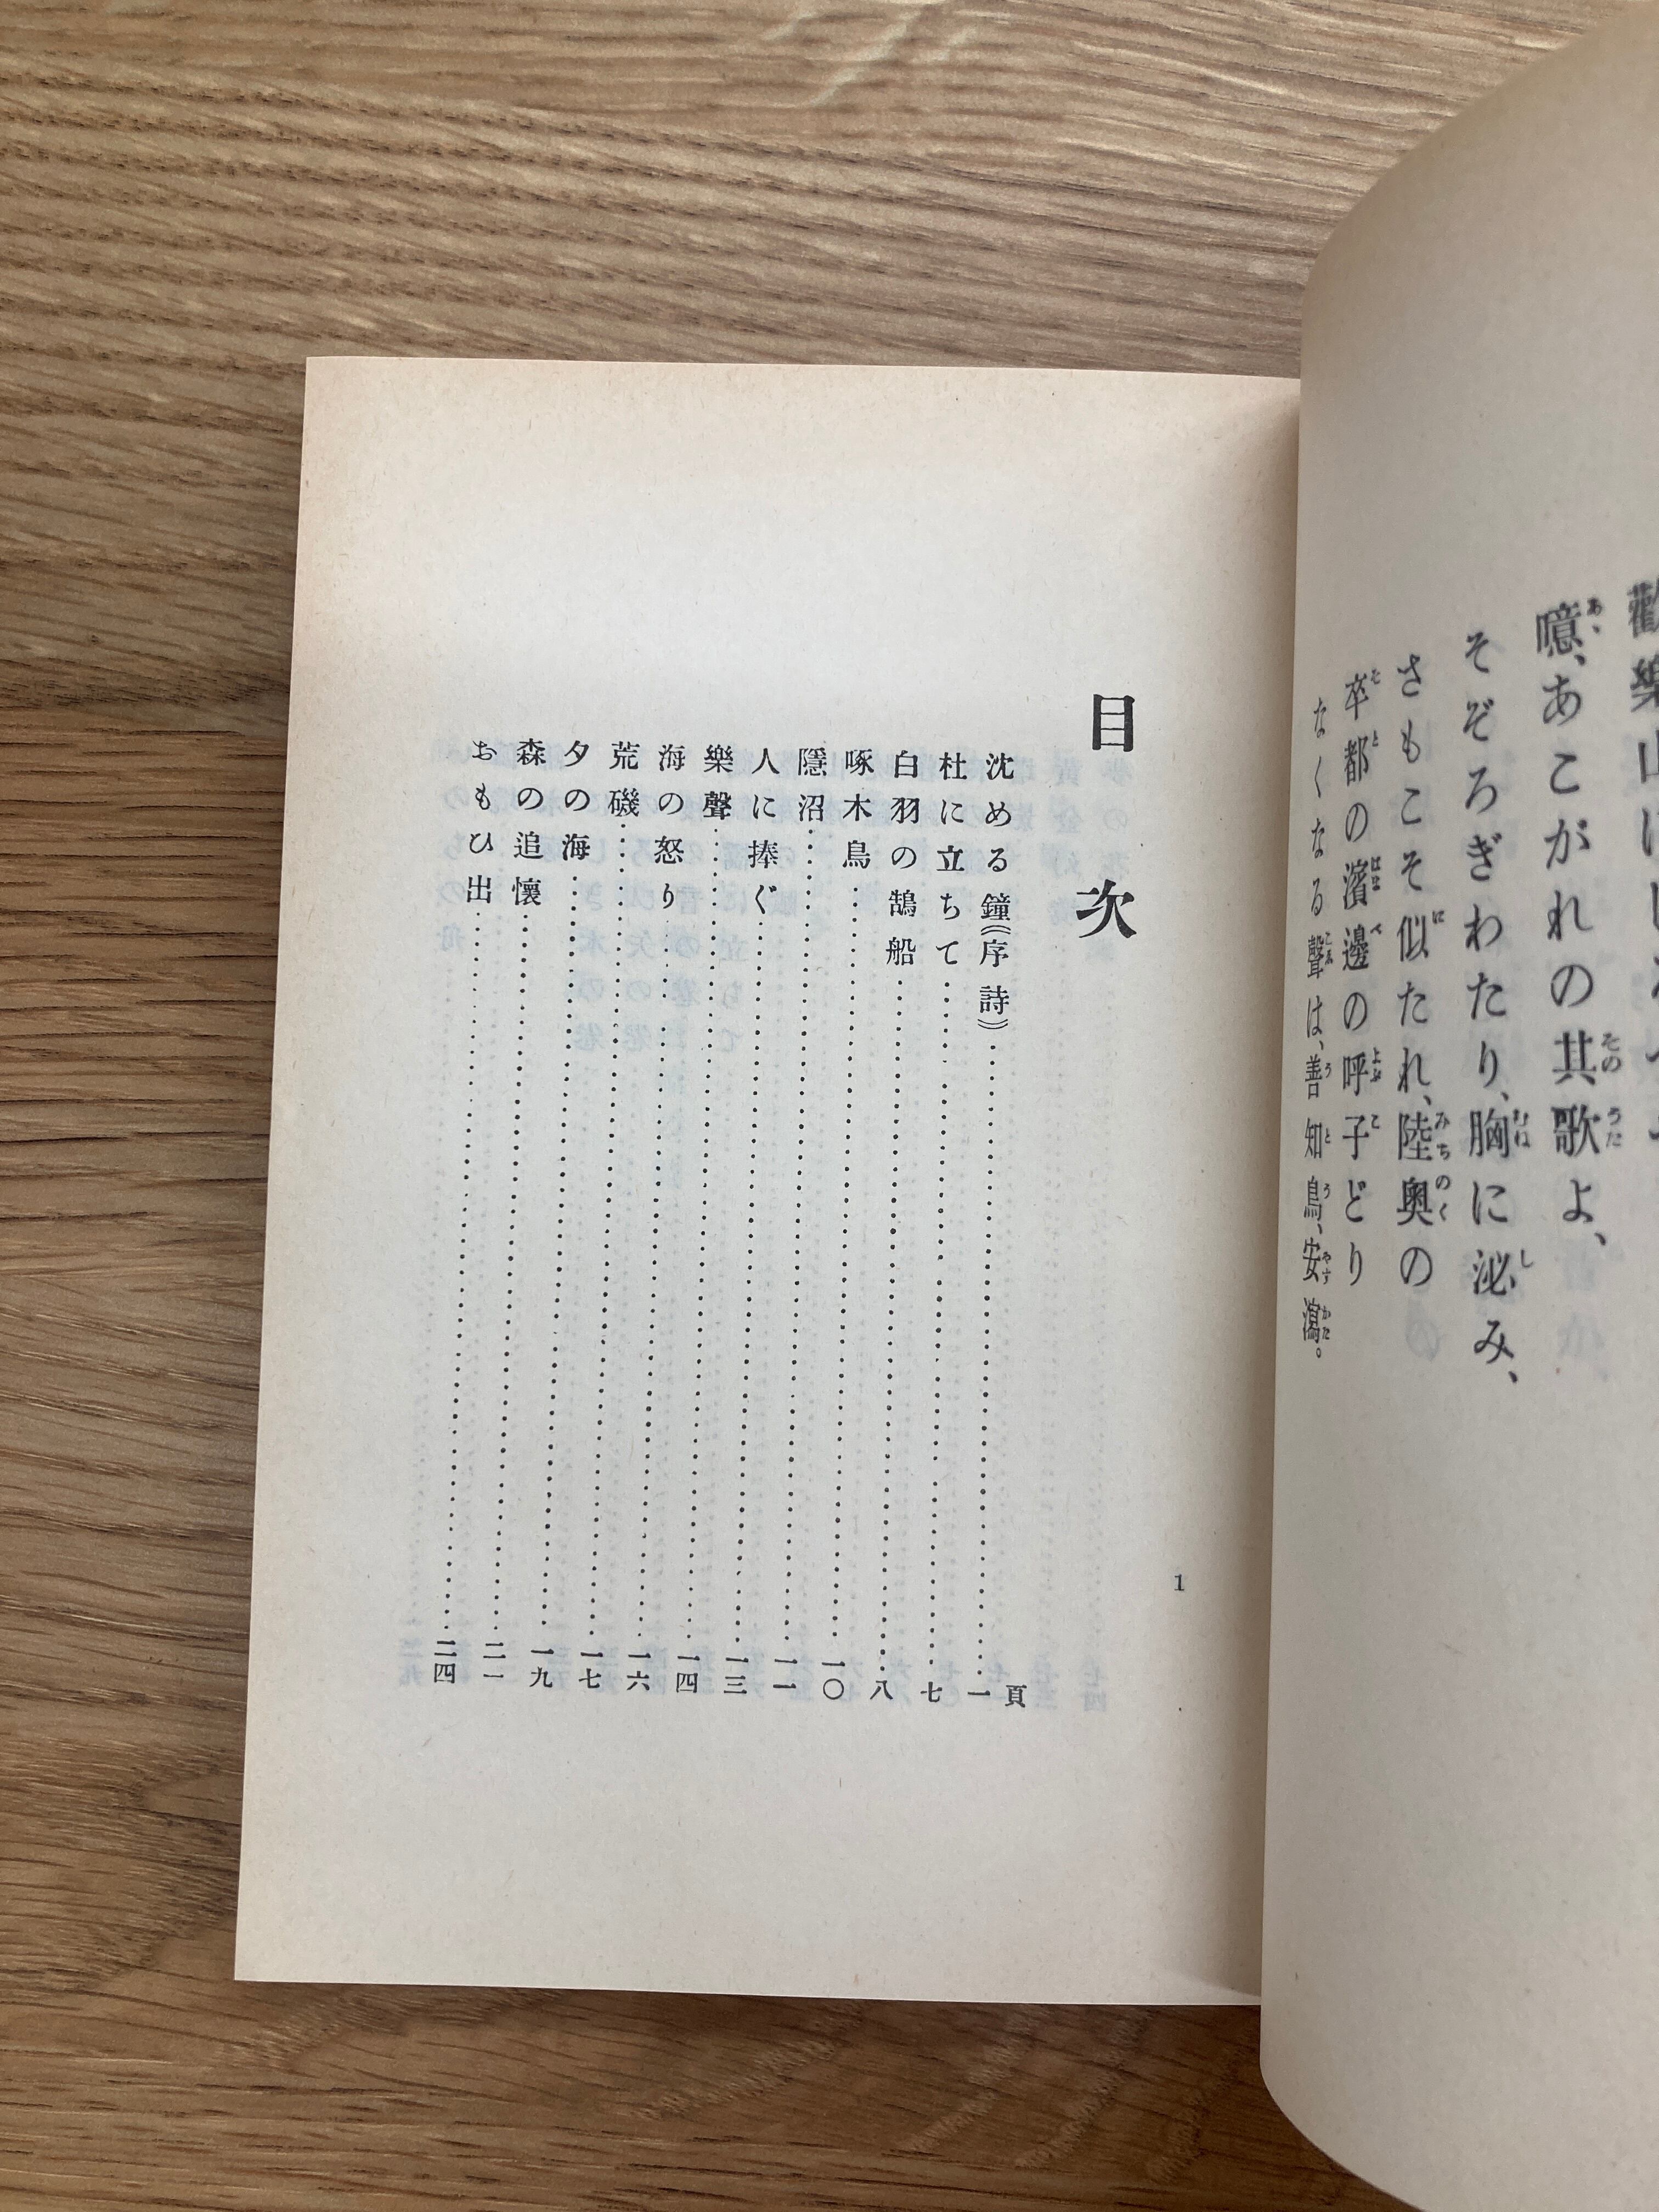 噫、あこがれの其歌よ、
そぞろぎわたり、胸に泌み、
さもこそ似たれ、陸奥の
卒都の濱邊の呼子どり
なくなる聲は、善知鳥、安潟。
1
目次
頁
沈める鐘《序詩》……一
杜に立ちて……七
白羽の鵠船……八
啄木鳥……一〇
隱沼……一一
人に捧ぐ……一三
樂聲……一四
海の怒り……一六
荒磯……一七
夕の海……一九
森の追懷……二一
おもひ出……二四